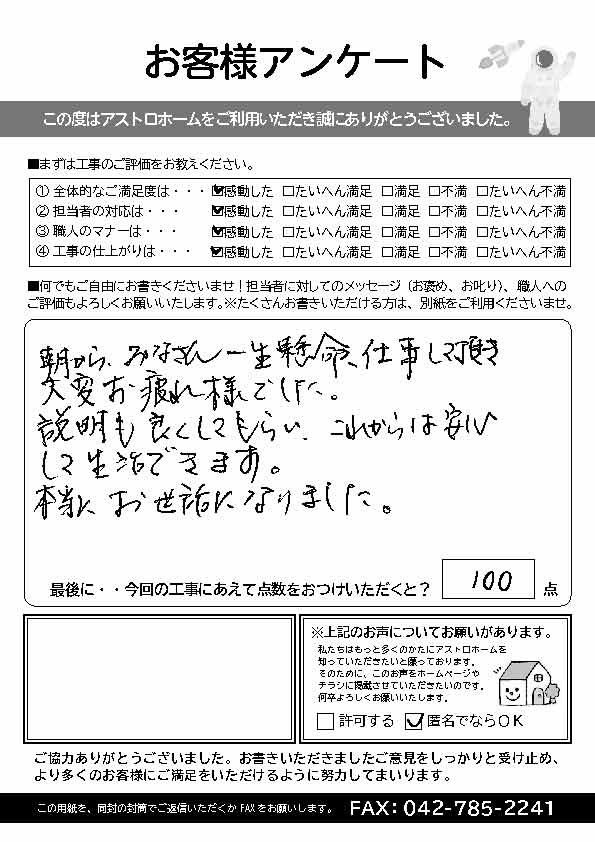 お客様アンケート
この度はアストロホームをご利用いただき誠にありがとうございました。
■まずは工事のご評価をお教えください。
① 全体的なご満足度は・・・ ☑感動した □たいへん満足 □満足 □不満 □たいへん不満
② 担当者の対応は・・・ ☑感動した □たいへん満足 □満足 □不満 □たいへん不満
③ 職人のマナーは・・・ ☑感動した □たいへん満足 □満足 □不満 □たいへん不満
④ 工事の仕上がりは・・・ ☑感動した □たいへん満足 □満足 □不満 □たいへん不満
■何でもご自由にお書きくださいませ！担当者に対してのメッセージ（お褒め、お叱り）、職人への
ご評価もよろしくお願いいたします。※たくさんお書きいただける方は、別紙をご利用くださいませ。
朝から、みなさん一生懸命、仕事して頂き
大変お疲れ様でした。
説明も良くしてもらい、これからは安心
して生活できます。
本当にお世話になりました。
最後に・・今回の工事にあえて点数をおつけいただくと？ 100 点
※上記のお声についてお願いがあります。
私たちはもっと多くのかたにアストロホームを
知っていただきたいと願っております。
そのために、このお声をホームページや
チラシに掲載させていただきたいのです。
何卒よろしくお願いいたします。
□許可する ☑匿名でならOK
ご協力ありがとうございました。お書きいただきましたご意見をしっかりと受け止め、
より多くのお客様にご満足をいただけるように努力してまいります。
この用紙を、同封の封筒でご返信いただくか FAX をお願いします。 FAX: 042-785-2241